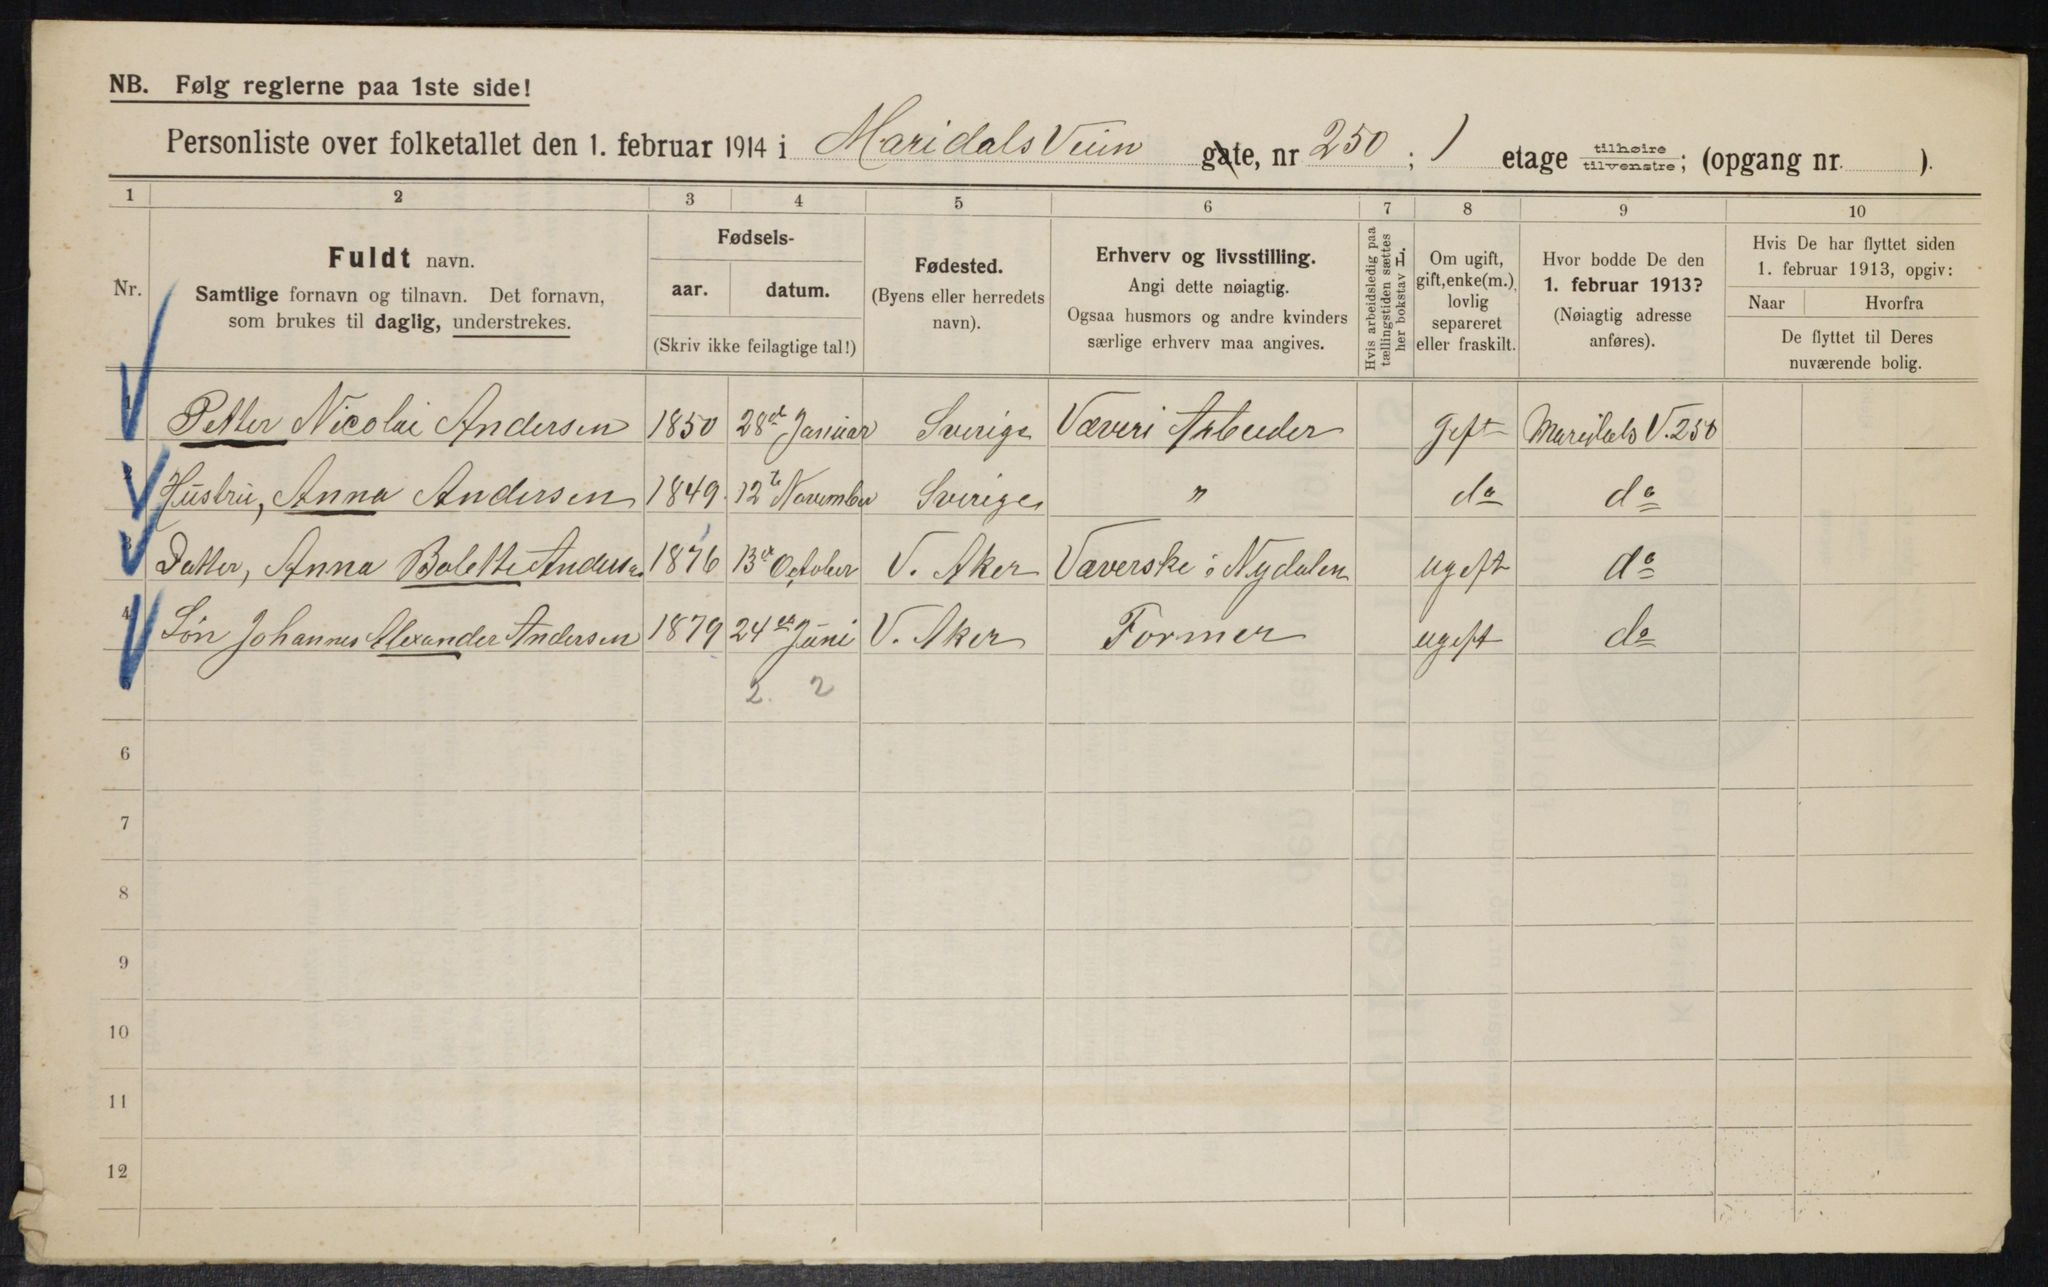 NB. Følg reglerne paa 1ste side!
Personliste over folketallet den 1. februar 1914 i Maridals Veien gate, nr 250 ; 1 etage tilhøire/tilvenstre; (opgang nr. ).
1 2 3 4 5 6 7 8 9 10
Nr.
Fuldt navn.
Samtlige fornavn og tilnavn. Det fornavn,
som brukes til daglig, understrekes.
Fødsels-
aar. datum.
(Skriv ikke feilagtige tal!)
Fødested.
(Byens eller herredets
navn).
Erhverv og livsstilling.
Angi dette nøiagtig.
Ogsaa husmors og andre kvinders
særlige erhverv maa angives.
Hvis arbeidsledig paa
tællingstiden sættes
her bokstav L.
Om ugift,
gift, enke(m.),
lovlig
separeret
eller fraskilt.
Hvor bodde De den
1. februar 1913?
(Nøiagtig adresse
anføres).
Hvis De har flyttet siden
1. februar 1913, opgiv:
Naar Hvorfra
De flyttet til Deres
nuværende bolig.
1 Petter Nicolai Andersen 1850 28d Januar Sverige Væveri Arbeider gift Maridals V. 250
Hustru, Anna Andersen 1849 12te November Sverige " do do
3 Datter, Anna Bolette Andersen 1876 13de October V. Aker Væverske i Nydalen ugift do
4 Søn Johannes Alexander Andersen 1879 24de Juni V. Aker Former ugift do
2. 2
6
7
8
9
10
11
12